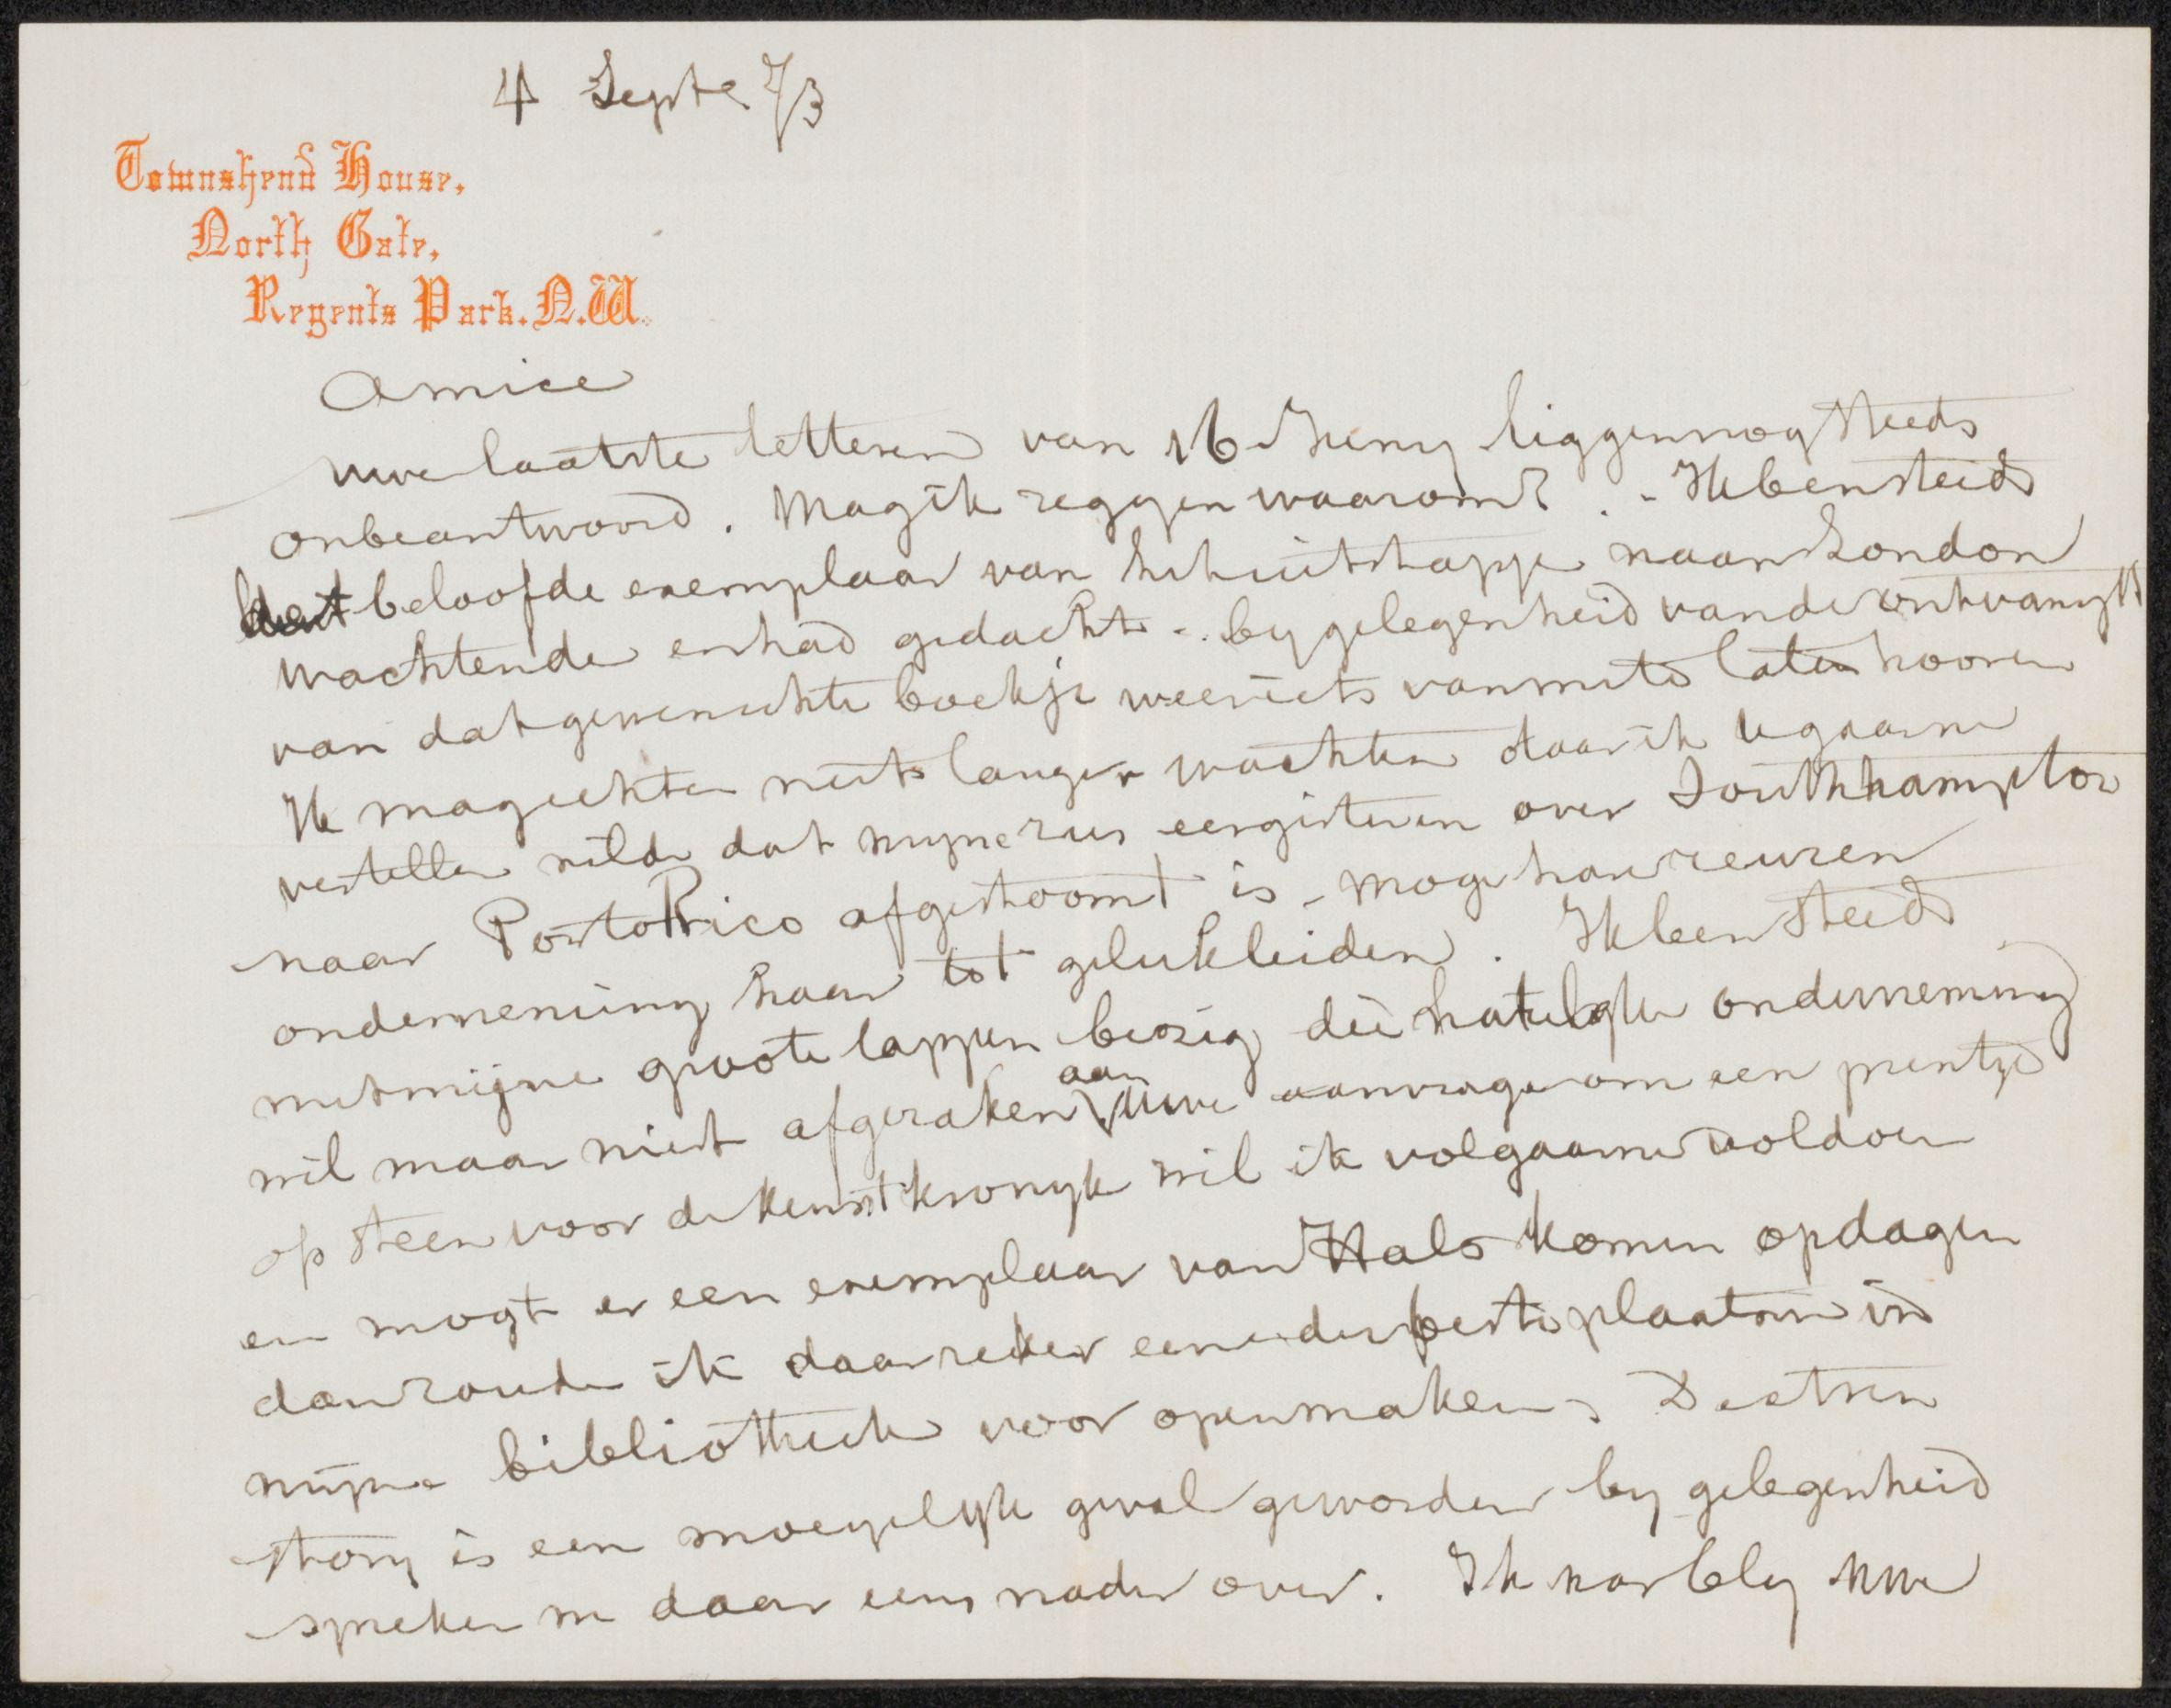 4 Septe 7/3
Townshend House,
North Gate,
Regents Park. N.W.
Amice
uwe laatste letteren van 16 Juny liggen nog steeds
onbeantwoord. Mag ik zeggen waarom? . - Ik ben steeds
het beloofde exemplaar van naar London
wachtende en had gedacht - by gelegenheid van de ontvangst
van dat gewenschte boekje weer iets van mij te laten hooren
Ik mag echter niet langer wachten daar ik U gaarne
vertellen wilde dat myne zus eergisteren over Southhampton
naar Porto Rico afgestoomt is - moge haar reuzen
onderneming haar tot geluk leiden. Ik been steeds
met mijne groote lappen bezig die hatelyke onderneming
wil maar niet afgeraken aan Uwe aanvrage om een prentje
op steen voor de Kunstkronyk wil ik volgaarne voldoen
en mogt er een exemplaar van Hals komen opdagen
dan zoude ik daar zeker eene der beste plaatsen in
mijne bibliotheek voor openmaken -
story is een moeyelyk geval geworden by gelegenheid
spreken we daar eens nader over. Ik verbly Uwe